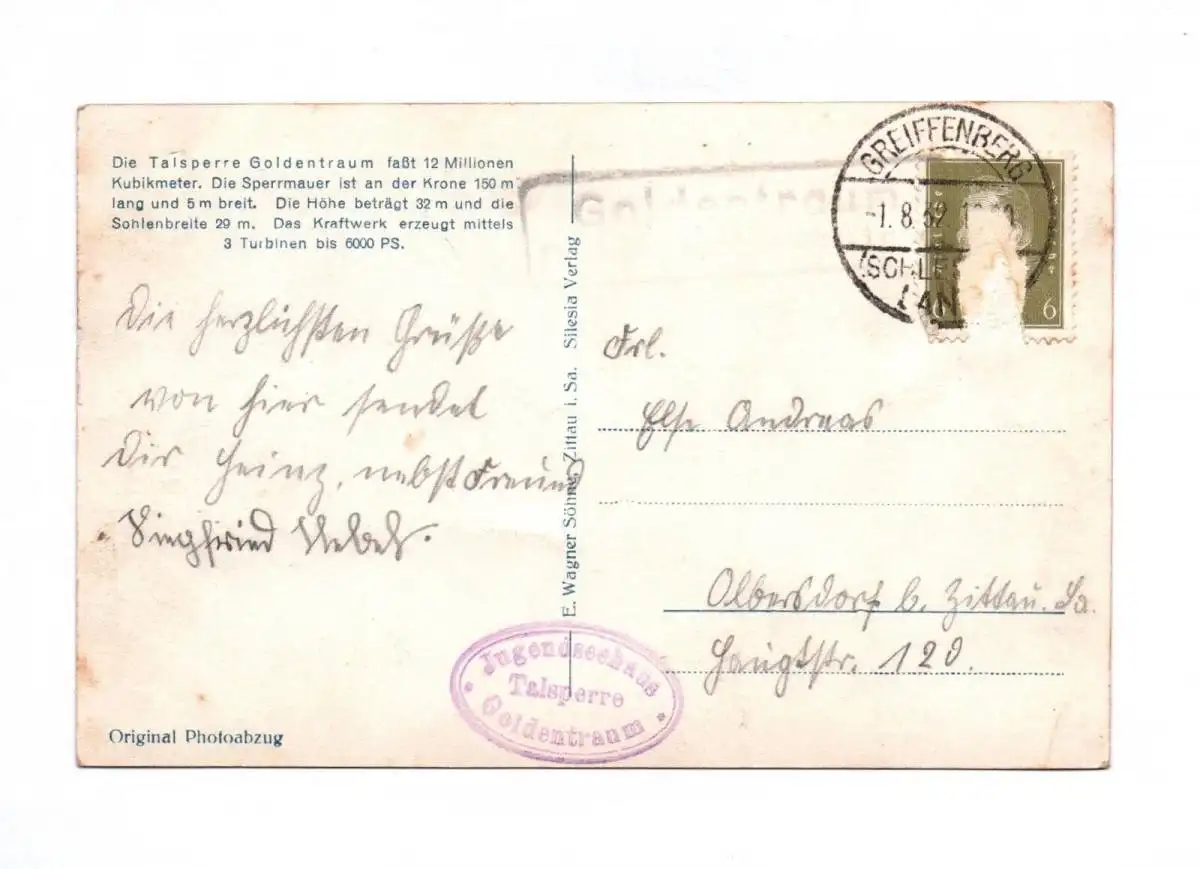 Die Talsperre Goldentraum faßt 12 Millionen
Kubikmeter. Die Sperrmauer ist an der Krone 150 m
lang und 5 m breit. Die Höhe beträgt 32 m und die
Sohlenbreite 29 m. Das Kraftwerk erzeugt mittels
3 Turbinen bis 6000 PS.
Die herzlichsten Grüße
von hier sendet
Dir Heinz, nebst Freund
Siegfried
Original Photoabzug
E. Wagner Söhne, Zittau i. Sa. Silesia Verlag
Jugendseehaus
Talsperre
Goldentraum
GREIFFENBERG
-1. 8. 32
(SCHLES
LAN
6
Frl.
Else Andreas
Olbersdorf b. Zittau. Sa.
Hauptstr. 120.